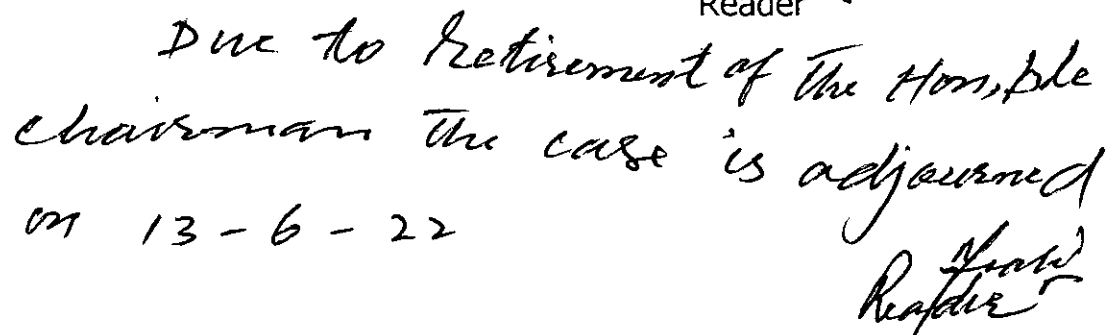 Reader
Due to Retirement of The Hon,ble
chairman The case is adjourned
on 13-6-22
Reader